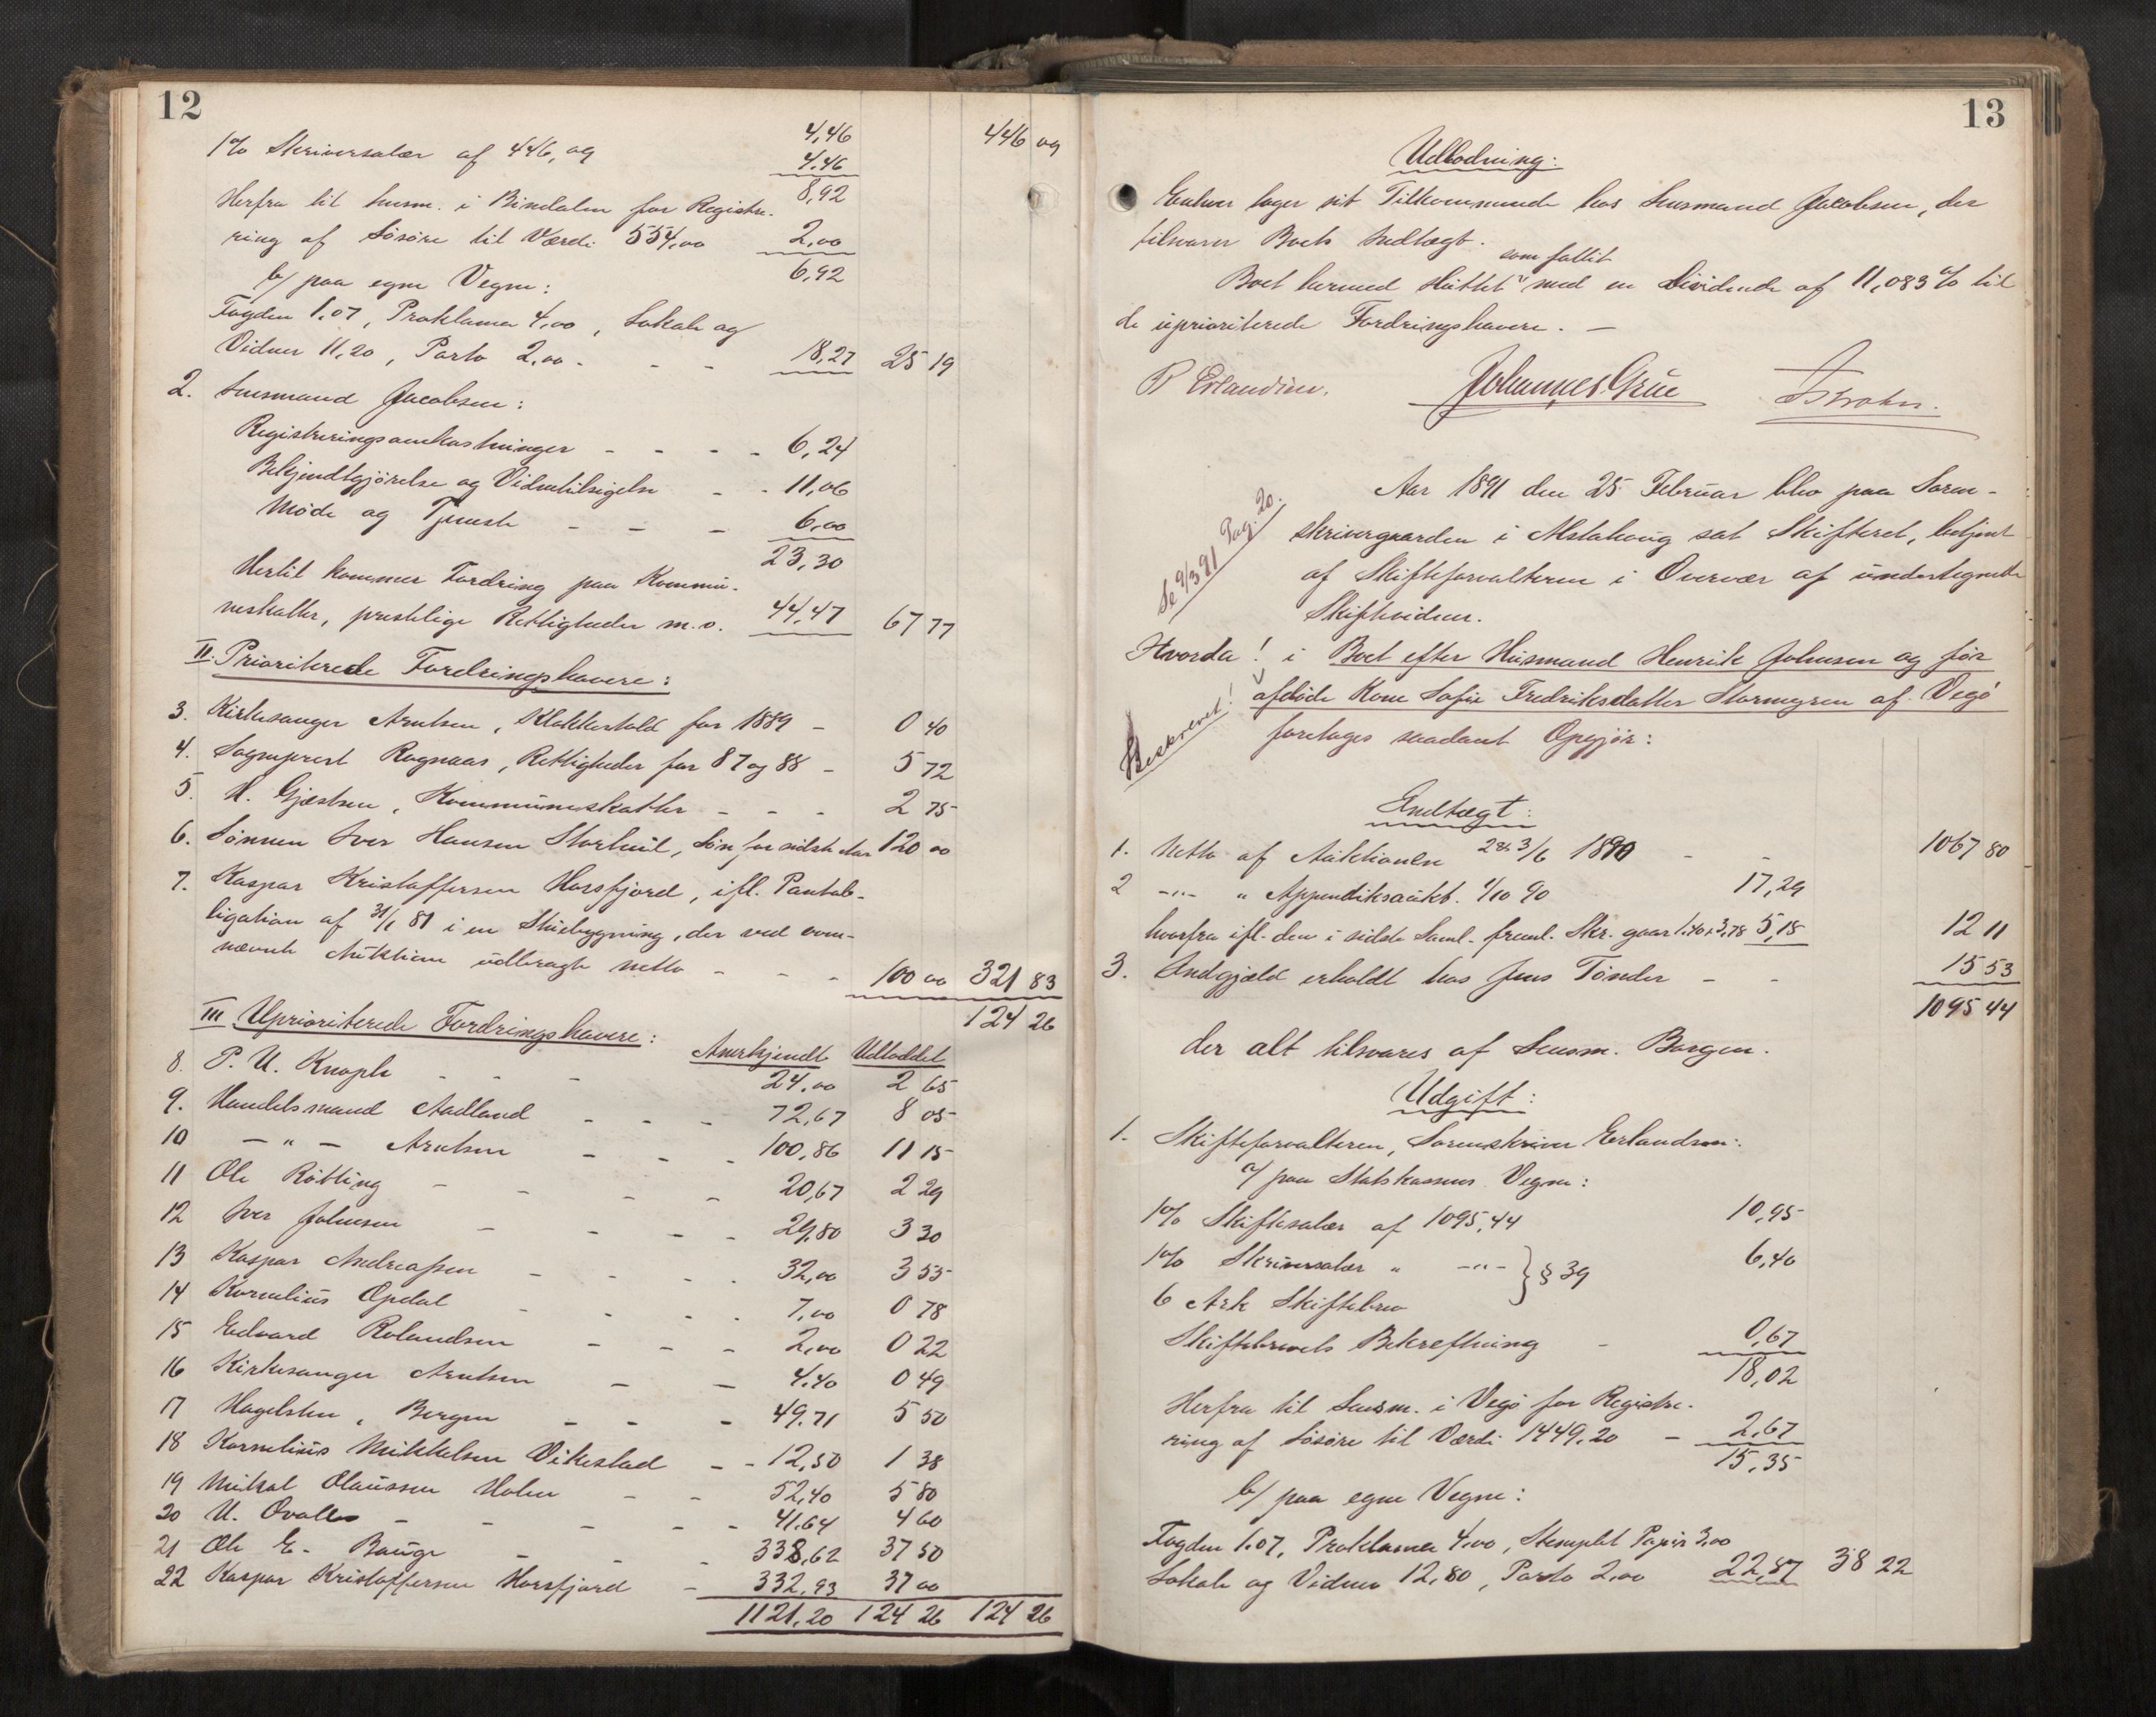 12
4,46 446 09
1% Skriversalær af 446,09 4,46
8,92
Herfra til Lensm. i Bindalen for Registre-
ring af Løsøre til Værdi 554,00 2,00
6,92
b/ paa egne Vegne:
Fogden 1.07, Proklama 4,00, Lokale og
Vidner 11,20, Porto 2,00 - - - 18,27 25 19
2. Lensmand Jacobsen:
Registreringsomkostninger - - - - 6,24
Bekjendtgjörelse og Vidnetilsigelse - - 11,06
Möde og Tjeneste - - - 6,00
23,30
Hertil kommer Fordring paa Kommu-
neskatter, presteligе Rettigheder m.v. 44,47 67 77
II. Prioriterede Fordringshavere:
3. Kirkesanger Arntsen, Klokkertold for 1889 - 0 40
4. Sogneprest Rognaas, Rettigheder for 87 og 88 - 5 72
5. H. Gjæstsen, Kommuneskatter - - - 2 75
6. Sönnen Iver Hansen Storheil, Lön for sidste Aar 120 00
7. Kaspar Kristoffersen Horsfjord, ifl. Pantob-
ligation af 31/1 81 i en Stuebygning, der ved oven-
nævnte Auktion udbragte netto - - - 100 00 321 83
124 26
III Uprioriterede Fordringshavere: Anerkjendt Udloddet
8. P. U. Knoph - - - 24,00 2 65
9. Handelsmand Aadland - - - 72,67 8 05
10 - " - Arntsen - - - 100,86 11 15
11 Ole Rötting - - - - 20,67 2 29
12 Iver Johnsen - - - 29,80 3 30
13 Kaspar Andreassen - - - 32,00 3 55
14 Kornelius Opdal - - - 7,00 0 78
15 Edvard Rolandsen - - - 2,00 0 22
16 Kirkesanger Arntsen - - 4.40 0 49
17 Hagelsten, Bergen - - - 49.71 5 50
18 Kornelius Mikkelsen Vikestad - - 12,50 1 38
19 Mikal Olaussen Holm - - 52,40 5 80
20 U. - - - - - 41.64 4 60
21 Ole E. Bauge - - - 338,62 37 50
22 Kaspar Kristoffersen Horsfjord - 332,93 37 00
1121,20 124 26 124 26
13
Udlodning:
Enhver tager sit Tilkommende hos Lensmand Jacobsen, der
tilsvarer Boets Indtægt.
som fallit
Boet hermed sluttet med en Dividende af 11,083% til
de uprioriterede Fordringshavere. -
P Erlandsen. Johannes Grue
Aar 1891 den 25 Februar blev paa Soren-
skrivergaarden i Alstahoug sat Skifteret, betjent
af Skifteforvalteren i Overvær af undertegnede
Skiftevidner.
Se 9/3 91 Pag. 20.
Hvorda! i Boet efter Husmand Henrik Johnsen og før
afdøde Kone Sofie Fredriksdatter Stormyren af Vegö
Beskrevet!
foretages saadant Opgjör:
Indtægt:
1. Netto af Auktionen 2 & 3/6 1890 - - 1067 80
2 -"- " Appendiksaukt. 1/10 90 17,29
hvorfra ifl. den i sidste Saml. freml. Skr. gaar 1.40+3,78 5,18 12 11
3. Indgjæld erholdt hos Jens Tönder - - 15 53
1095 44
der alt tilsvares af Lensm. Borgen.
Udgift:
1. Skifteforvalteren, Sorenskriver Erlandsen:
a/ paa Statskassens Vegne:
1% Skiftesalær af 1095,44 10,95
1% Skriversalær " -"- } § 39 6,40
6 Ark Skiftebrev
Skiftebrevets Bekreftning - 0,67
18,02
Herfra til Lensm. i Vegö for Registre-
ring af Løsøre til Værdi 1449,20 - 2,67
15,35
b/ paa egne Vegne:
Fogden 1.07, Proklama 4,00, Stemplet Papir 3,00
Lokale og Vidner 12,80, Porto 2,00 22,87 38 22